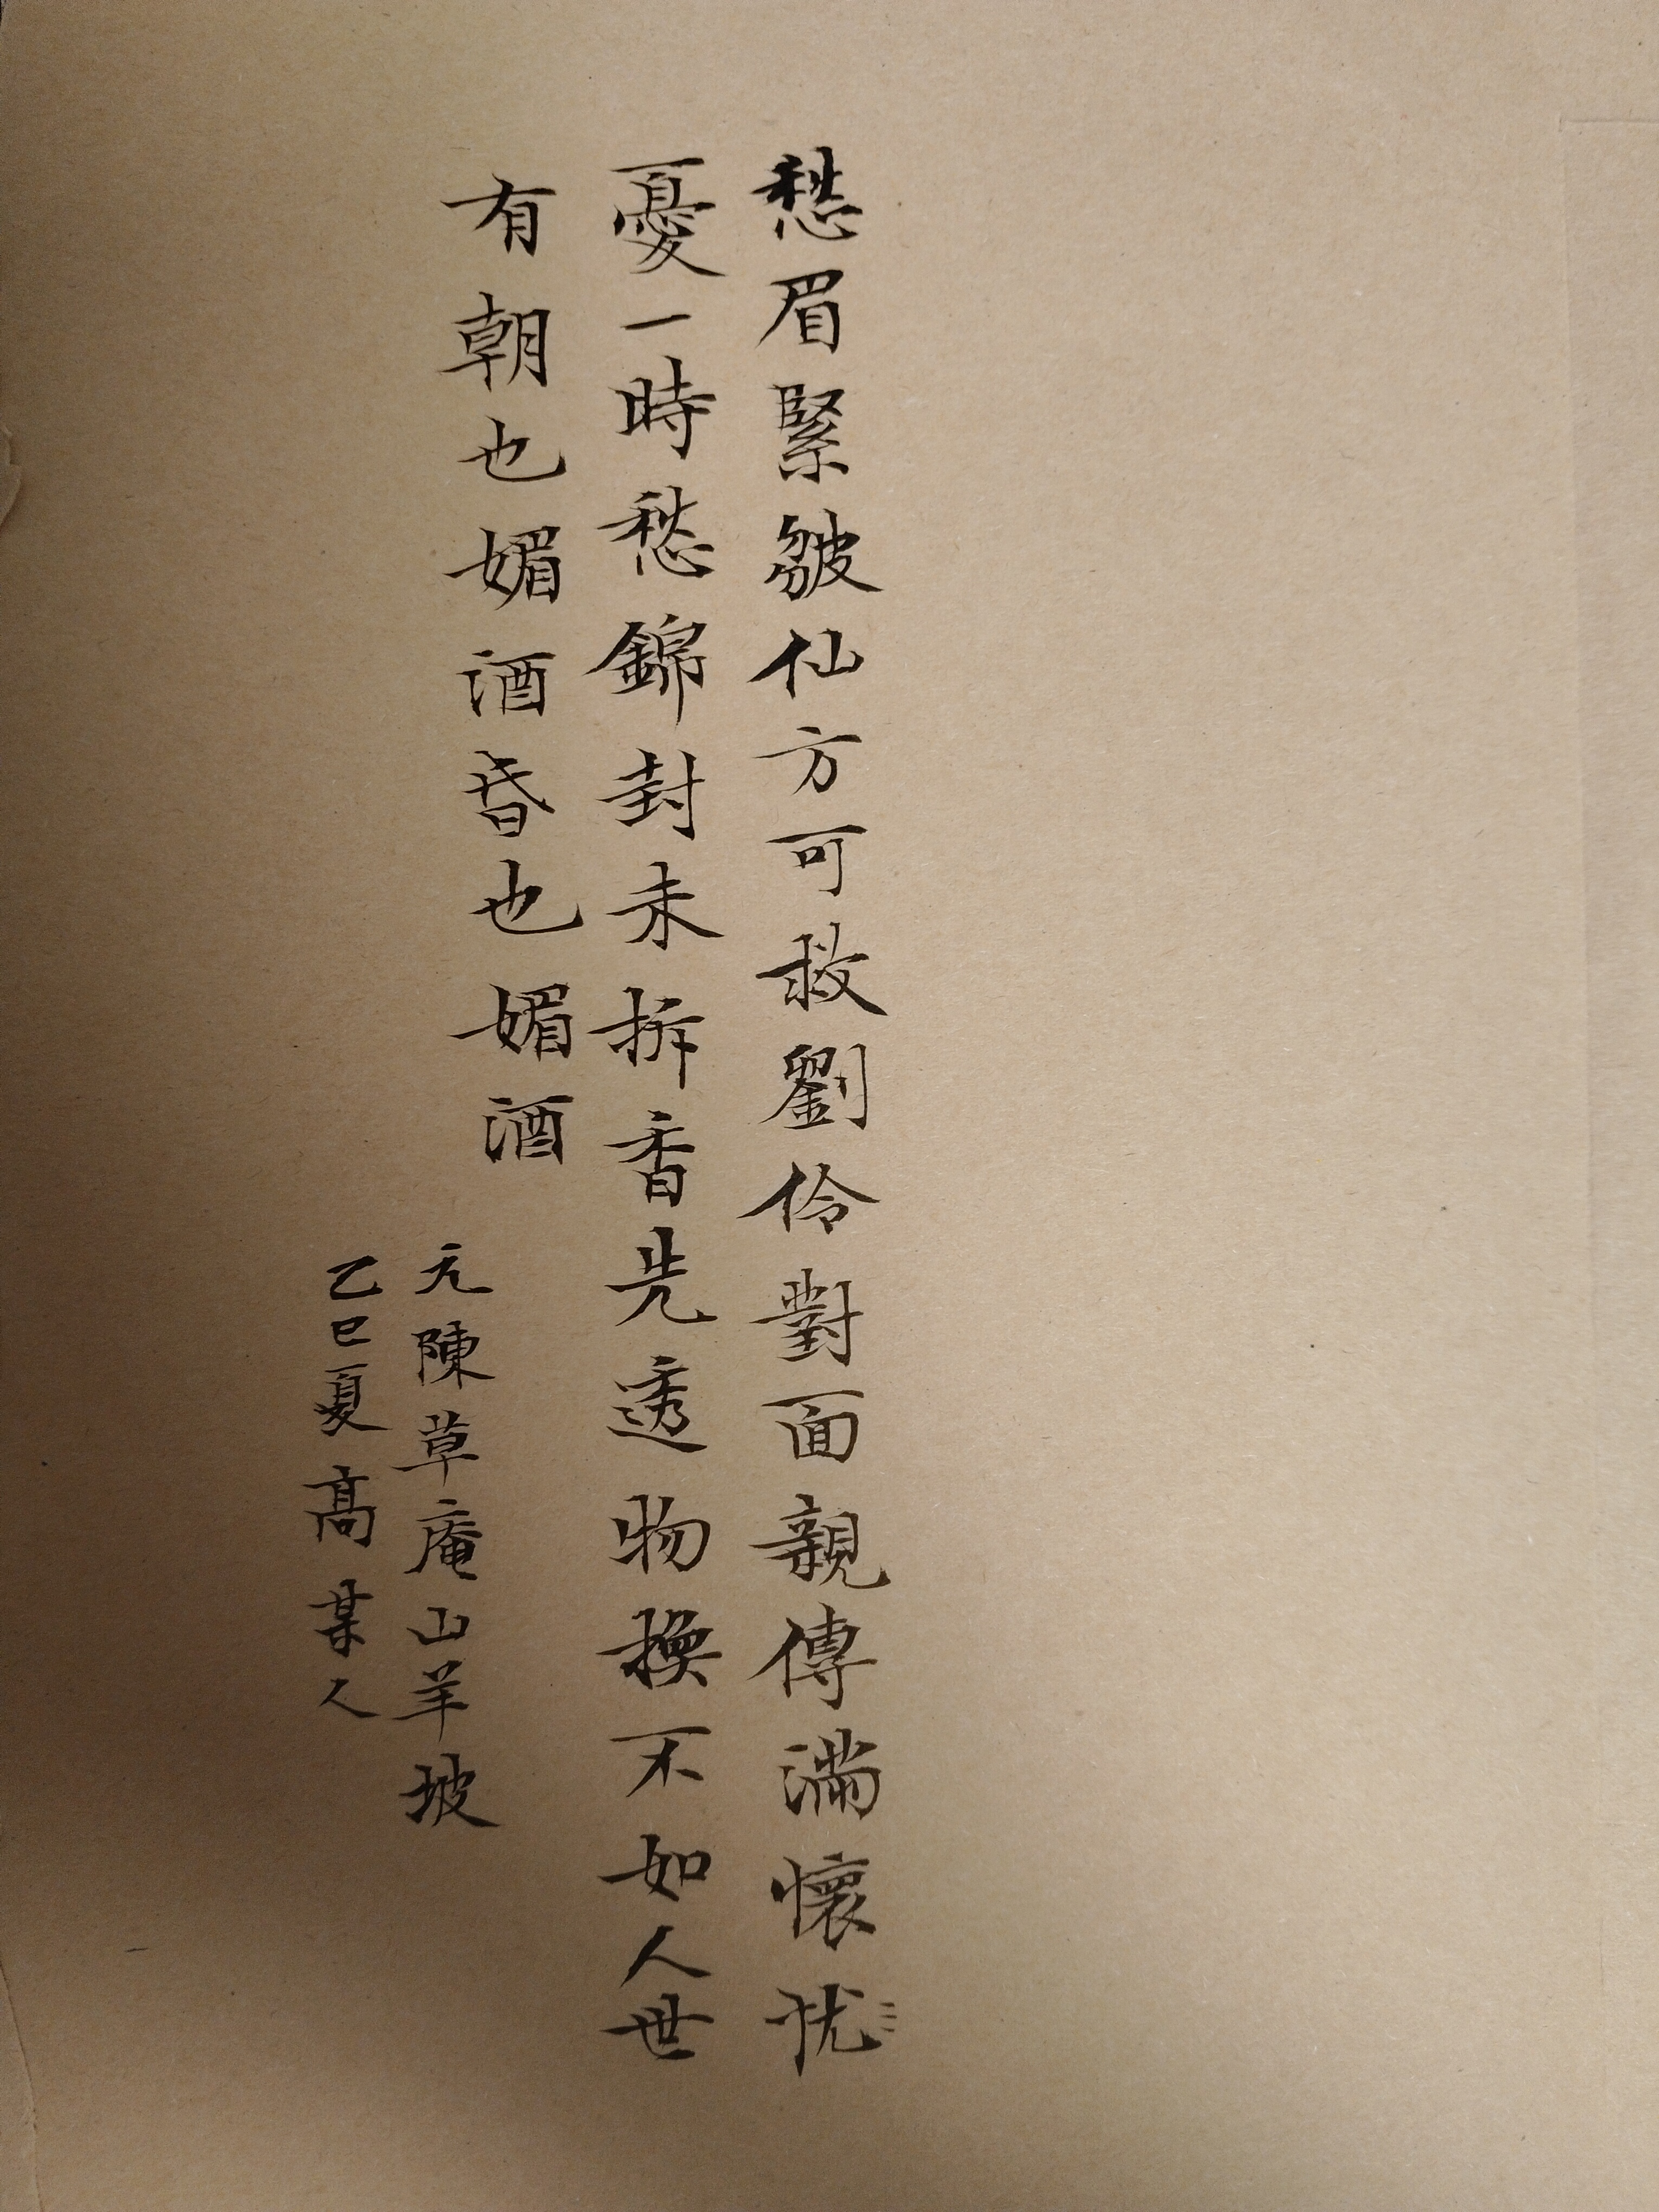 愁眉緊皺仙方可救劉伶對面親傳滿懷犹
憂一時愁錦封未拆香先透物換不如人世
有朝也媚酒昏也媚酒
元陳草庵山羊坡
乙巳夏高某人